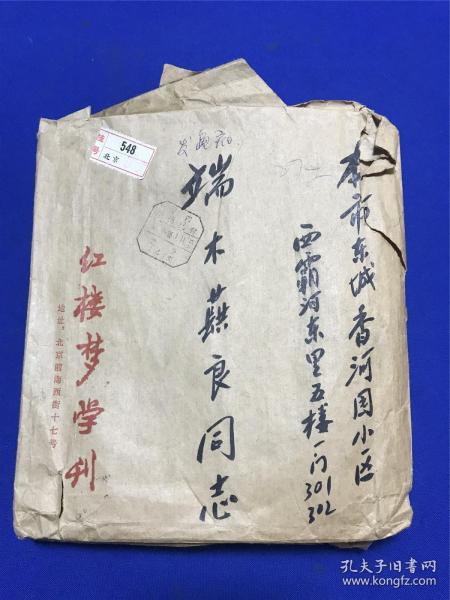 本市东城香河园小区
西霸河东里五楼一门301
302
端木蕻良同志
挂号
548
北京
红楼梦学刊
地址：北京前海西街十七号
孔夫子旧书网
www.kongfz.com